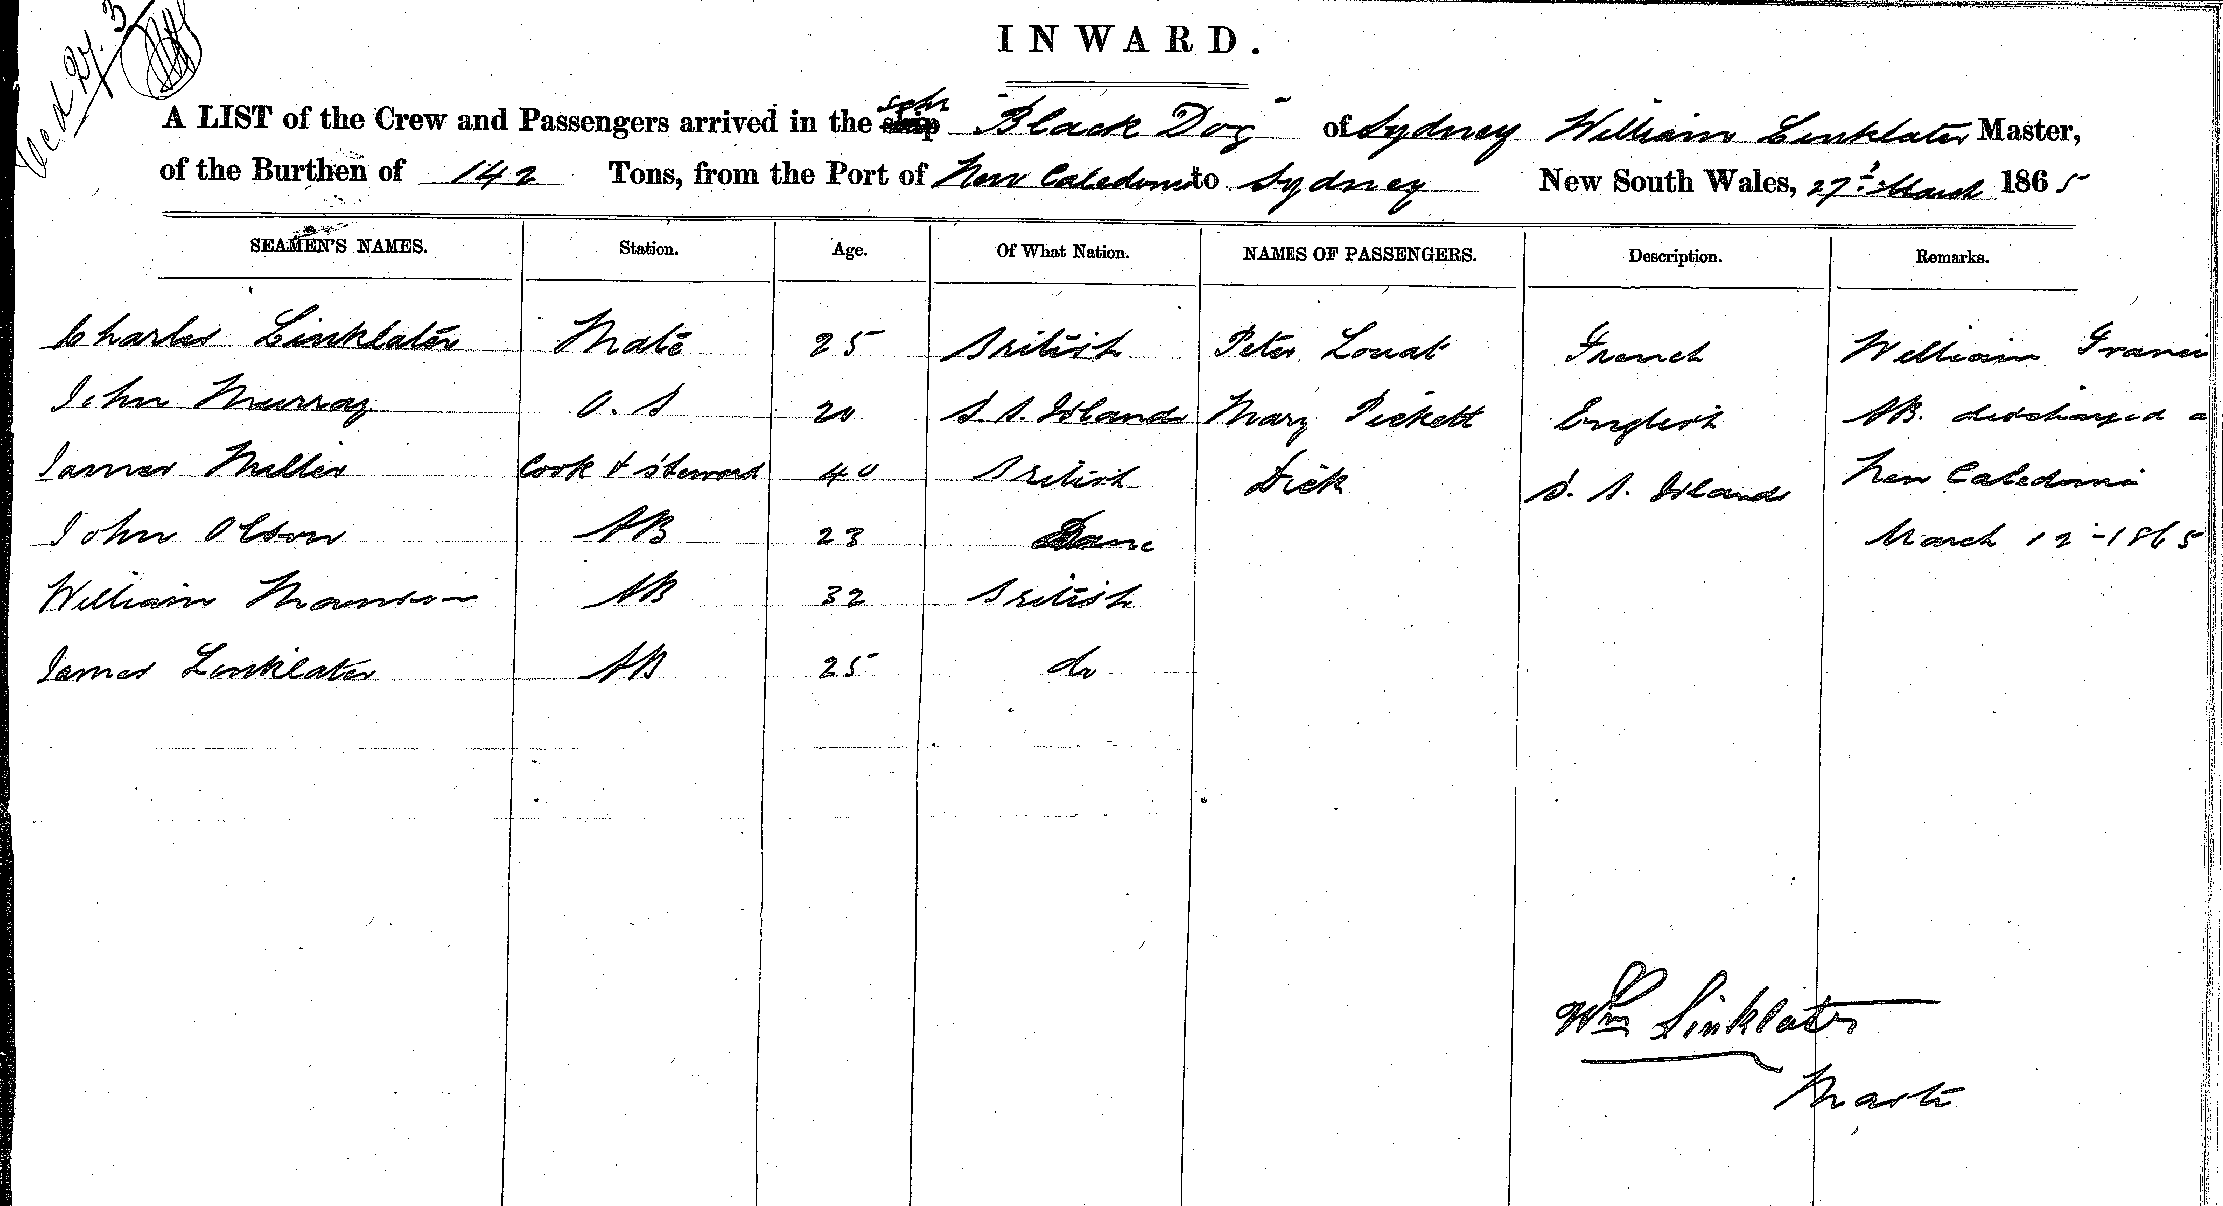 Recd 27.3
INWARD.
A LIST of the Crew and Passengers arrived in the ship schr "Black Dog" of Sydney William Linklater Master,
of the Burthen of 142 Tons, from the Port of New Caledonia to Sydney New South Wales, 27th March 1865
SEAMEN'S NAMES. Station. Age. Of What Nation. NAMES OF PASSENGERS. Description. Remarks.
Charles Linklater Mate 25 British Peter Louat French William Franci
John Murray O.S 20 S.S. Islands Mary Pickett English AB. discharged a
James Miller Cook & Steward 40 British Dick S. S. Islands New Caledonia
John Olson AB 23 Dane March 12-1865
William Manson AB 32 British
James Linklater AB 25 do
Wm Linklater
Master